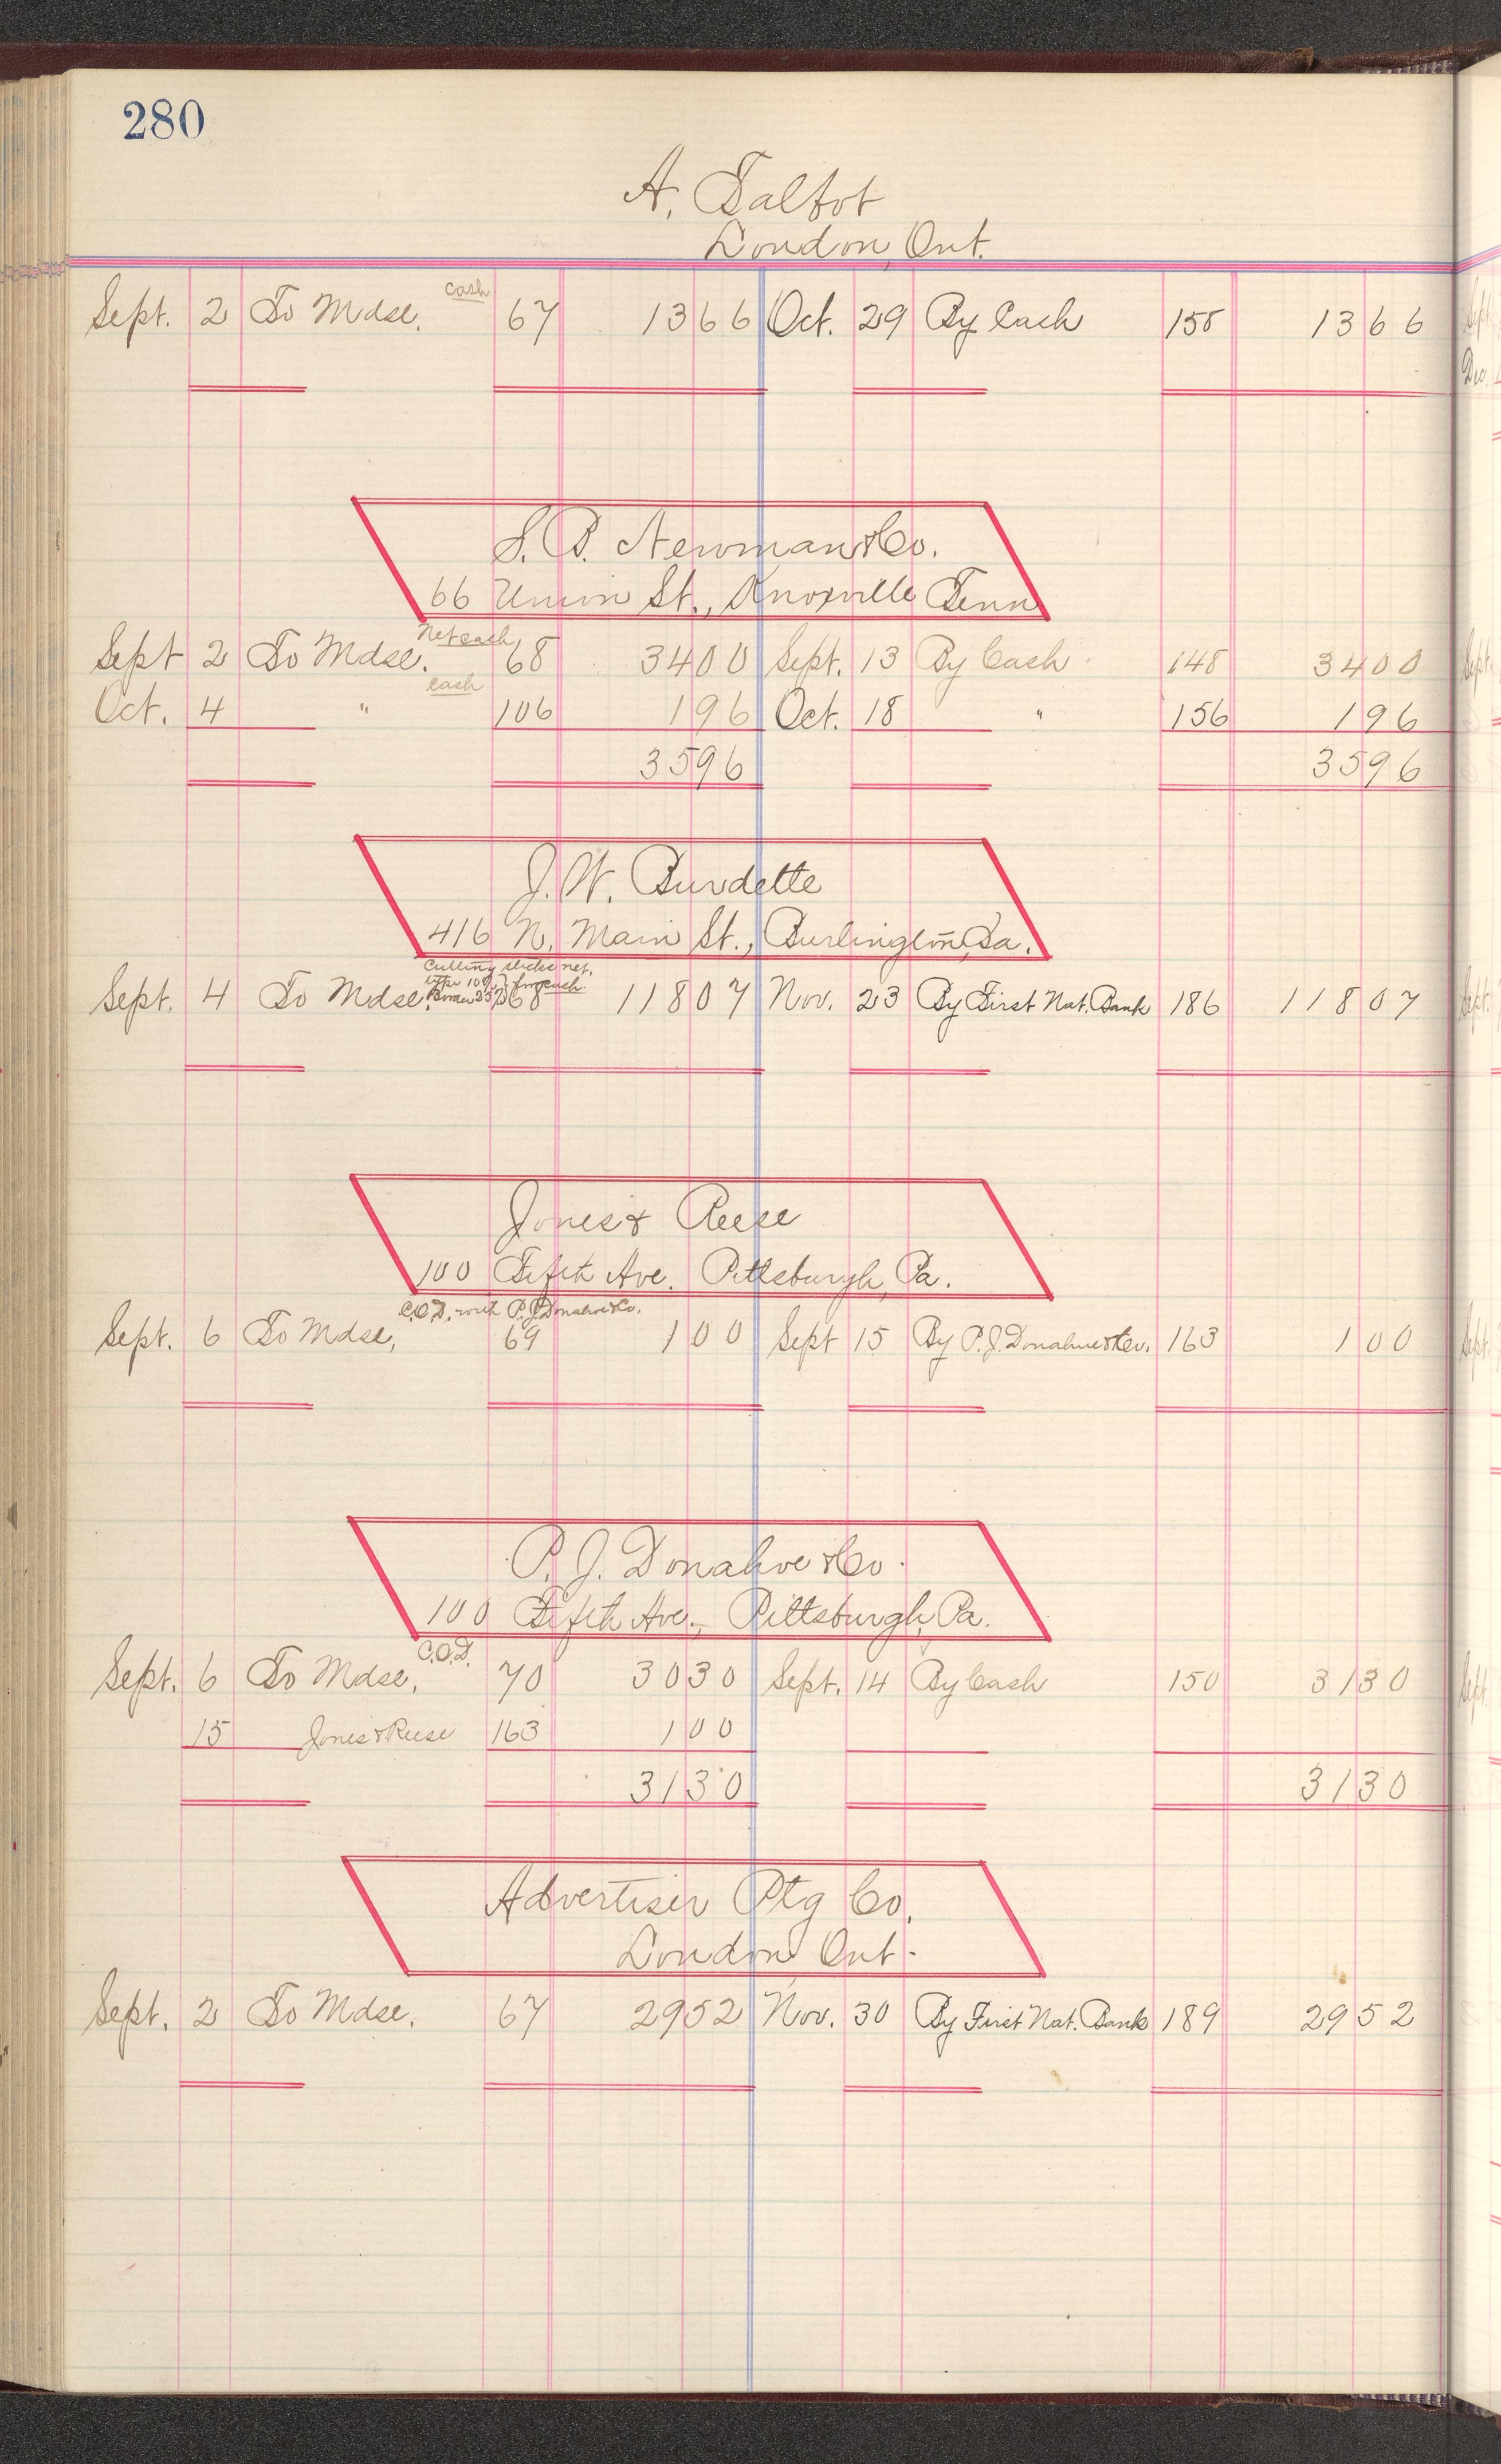 280
A. Talbot
London, Ont.
cash
Sept. 2 To Mdse. 67 13 66 Oct. 29 By Cash 158 13 66
S. B. Newman & Co.
66 Union St., Knoxville Tenn
Net cash
Sept 2 To Mdse. 68 34 00 Sept. 13 By Cash 148 34 00
cash
Oct. 4 " 106 1 96 Oct. 18 " 156 1 96
35 96 35 96
J. W. Burdette
416 N. Main St., Burlington, Ia.
Cutting sticks net.
type 10% for cash
Border 25%
Sept. 4 To Mdse. 68 118 07 Nov. 23 By First Nat. Bank 186 118 07
Jones & Reese
100 Fifth Ave. Pittsburgh, Pa.
C.O.D. with P. J. Donahoe & Co.
Sept. 6 To Mdse. 69 1 00 Sept 15 By P. J. Donahue & Co. 163 1 00
P. J. Donahoe & Co.
100 Fifth Ave., Pittsburgh, Pa.
C.O.D.
Sept. 6 To Mdse. 70 30 30 Sept. 14 By Cash 150 31 30
15 Jones & Reese 163 1 00
31 30 31 30
Advertiser Ptg Co.
London Ont.
Sept. 2 To Mdse. 67 29 52 Nov. 30 By First Nat. Bank 189 29 52